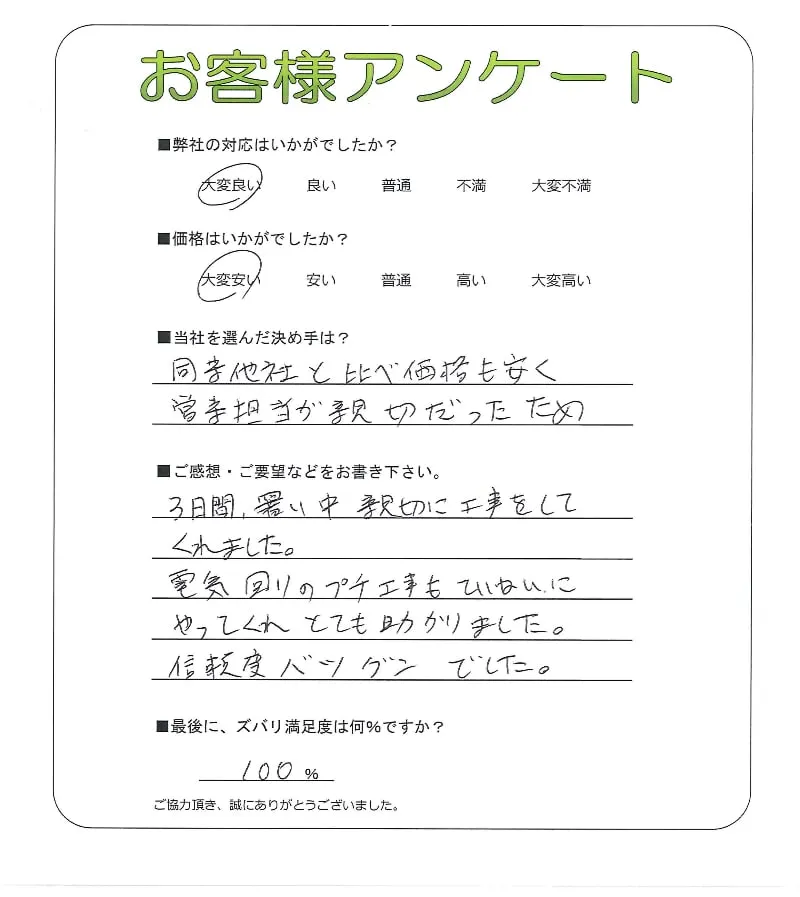 お客様アンケート
■弊社の対応はいかがでしたか？
大変良い 良い 普通 不満 大変不満
■価格はいかがでしたか？
大変安い 安い 普通 高い 大変高い
■当社を選んだ決め手は？
同業他社と比べ価格も安く
営業担当が親切だったため
■ご感想・ご要望などをお書き下さい。
3日間,暑い中 親切に工事をして
くれました。
電気回りのプチ工事もていねいに
やってくれ とても助かりました。
信頼度バツグン でした。
■最後に、ズバリ満足度は何%ですか？
100 %
ご協力頂き、誠にありがとうございました。